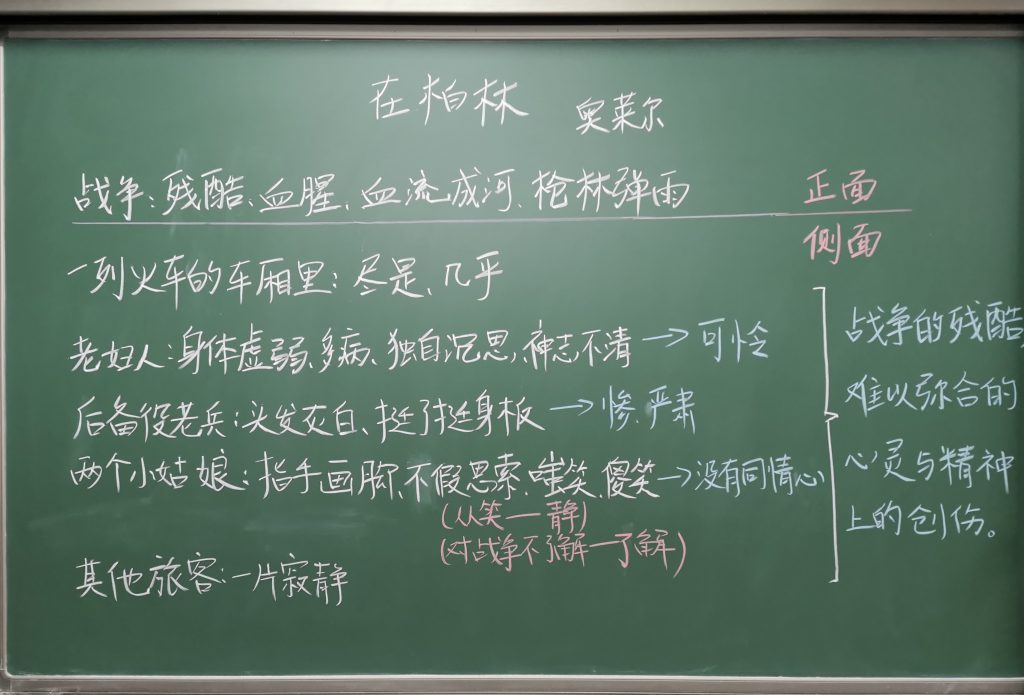 在柏林 奥莱尔
战争:残酷、血腥、血流成河、枪林弹雨 正面
侧面
一列火车的车厢里:尽是、几乎
老妇人:身体虚弱、多病、独自沉思,神志不清→可怜
后备役老兵:头发灰白、挺了挺身板→惨、严肃
两个小姑娘:指手画脚、不假思索、嗤笑、傻笑→没有同情心
(从笑—静)
(对战争不了解—了解)
其他旅客:一片寂静
战争的残酷,
难以弥合的
心灵与精神
上的创伤。